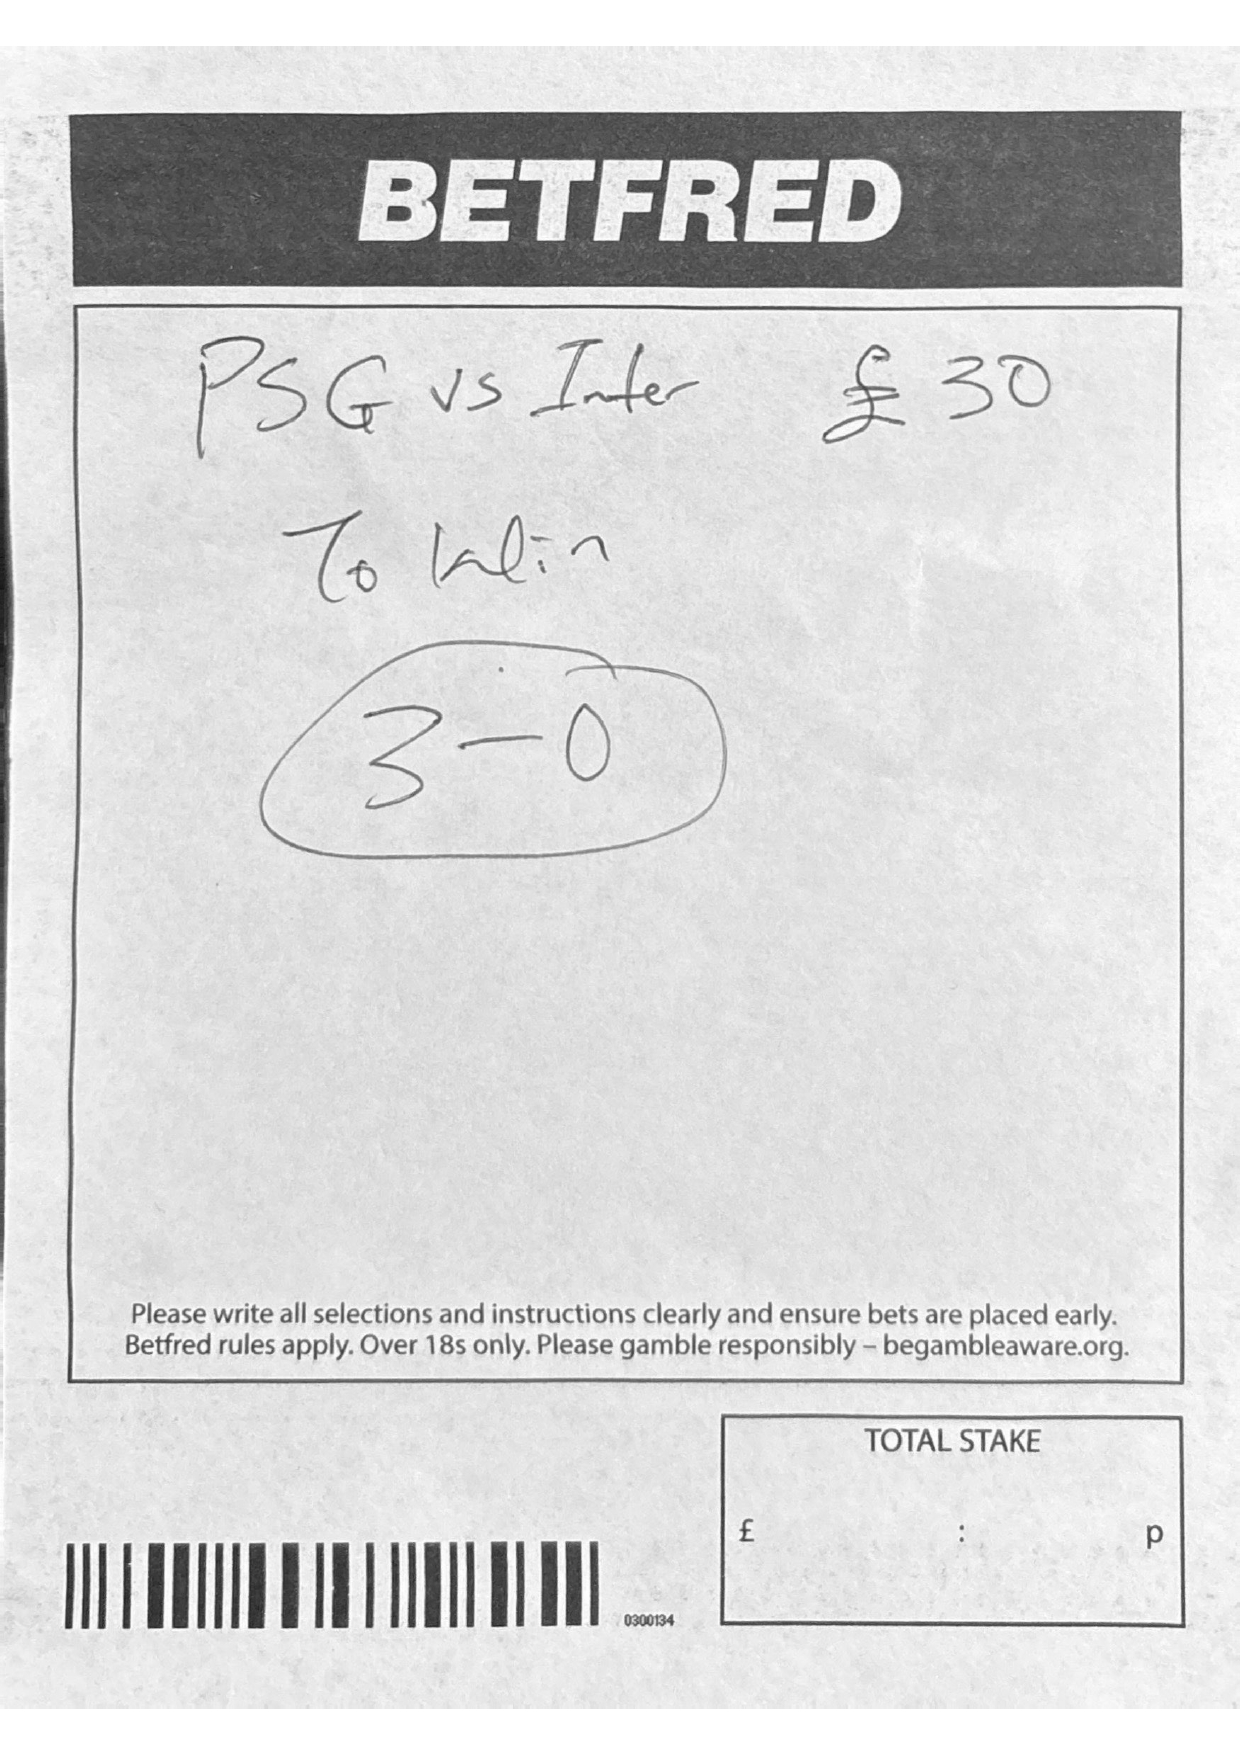 BETFRED
PSG vs Inter £30
To Win
3-0
Please write all selections and instructions clearly and ensure bets are placed early.
Betfred rules apply. Over 18s only. Please gamble responsibly – begambleaware.org.
TOTAL STAKE
£ : p
0300134